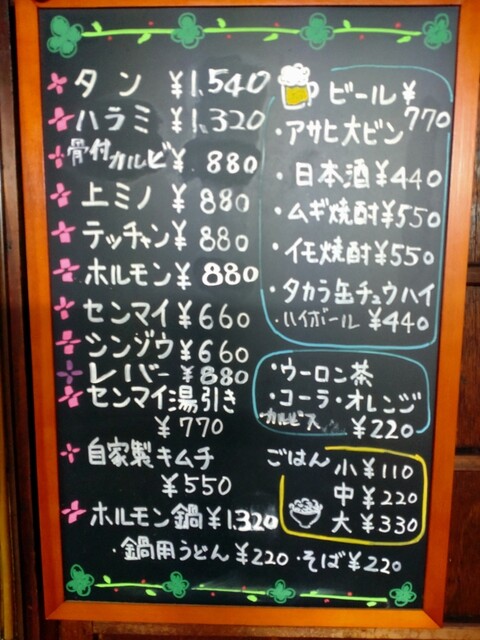 タン ¥1,540
ハラミ ¥1,320
骨付カルビ ¥880
上ミノ ¥880
テッチャン ¥880
ホルモン ¥880
センマイ ¥660
シンゾウ ¥660
レバー ¥880
センマイ湯引き
¥770
自家製キムチ
¥550
ホルモン鍋 ¥1,320
・鍋用うどん ¥220 ・そば ¥220
ビール ¥770
・アサヒ大ビン
・日本酒 ¥440
・ムギ焼酎 ¥550
・イモ焼酎 ¥550
・タカラ缶チュウハイ
・ハイボール ¥440
・ウーロン茶
・コーラ・オレンジ
カルピス ¥220
ごはん 小 ¥110
中 ¥220
大 ¥330